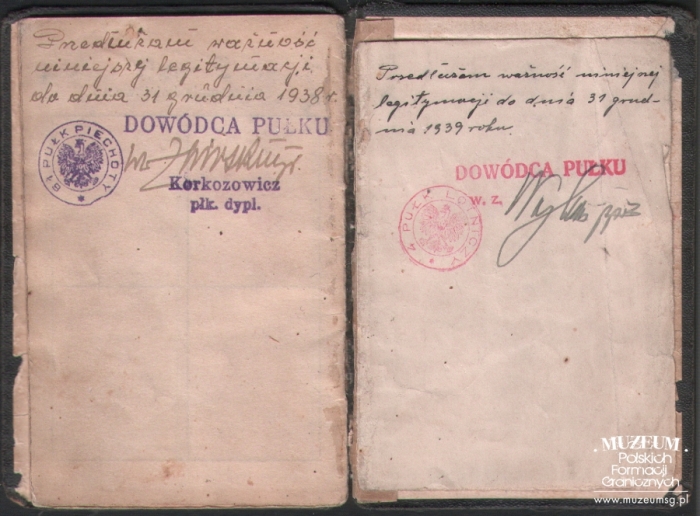 Przedłużam ważność
niniejszej legitymacji
do dnia 31 grudnia 1938 r.
DOWÓDCA PUŁKU
81 PUŁK PIECHOTY
Korkozowicz
płk. dypl.
Przedłużam ważność niniejszej
legitymacji do dnia 31 grud-
nia 1939 roku.
DOWÓDCA PUŁKU
w. z.
4 PUŁK LOTNICZY
MUZEUM
Polskich
Formacji
Granicznych
www.muzeumsg.pl